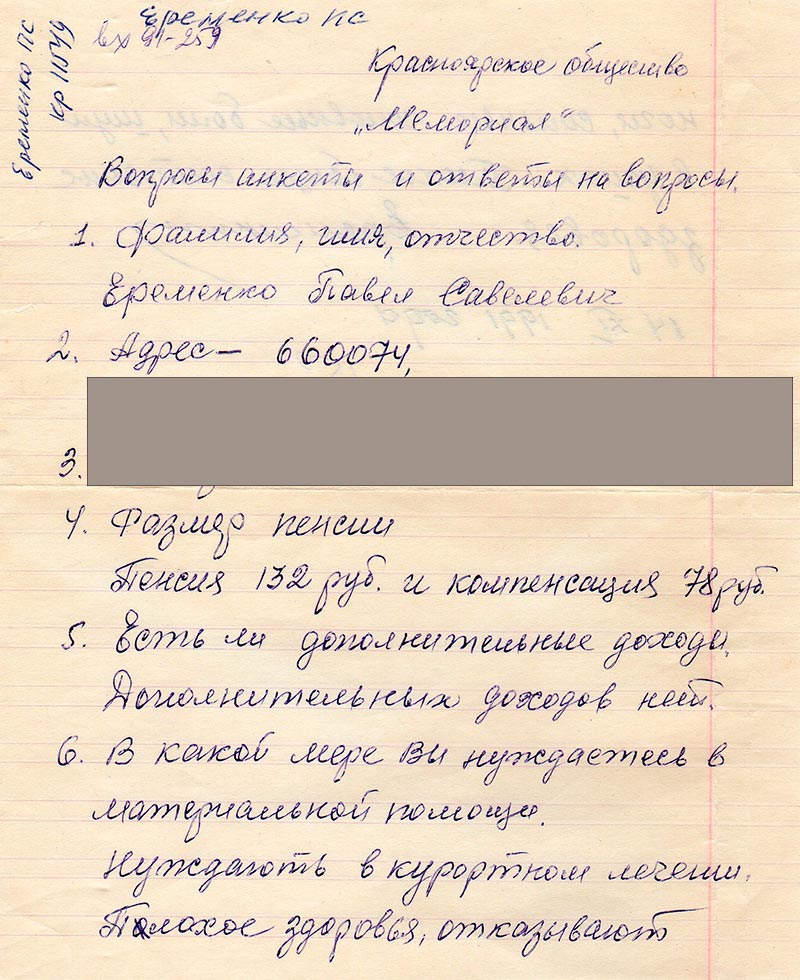 Еременко ПС
вх 91-259
Еременко ПС
кр 11549
Красноярское общество
„Мемориал“
Вопросы анкеты и ответы на вопросы.
1. Фамилия, имя, отчество.
Еременко Павел Савелевич
2. Адрес – 660074,
3.
4. Размер пенсии
Пенсия 132 руб. и компенсация 78 руб.
5. Есть ли дополнительные доходы.
Дополнительных доходов нет.
6. В какой мере Вы нуждаетесь в
материальной помощи.
Нуждають в курортном лечении.
Плохое здоровья, отказывают